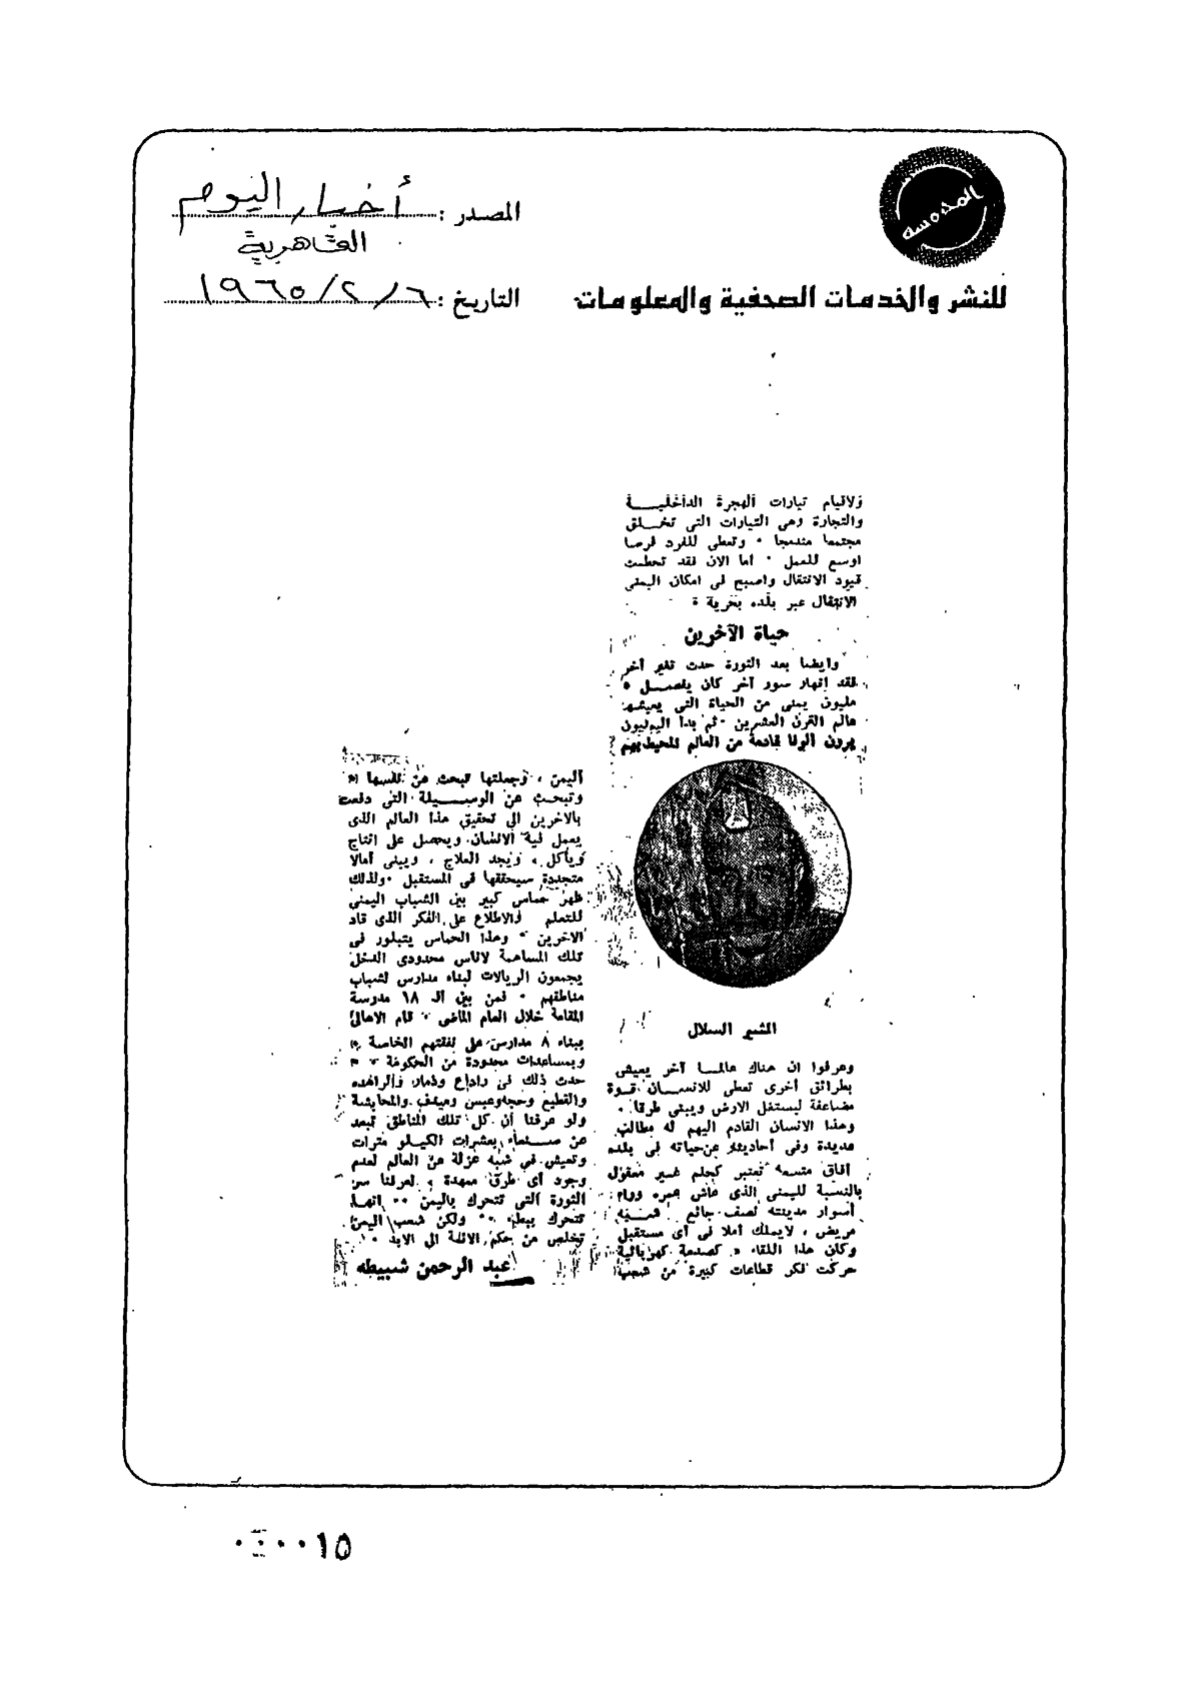 المدوسه
للنشر والخدمات الصحفية والمعلومات
المصدر : أخبار اليوم
القاهرية
التاريخ : ١٩٦٥/٢/٦
ولاقيام تيارات الهجرة الداخلية
والتجارة وهى التيارات التى تخلق
مجتمعا مندمجا ٠ وتعطى للفرد فرصا
اوسع للعمل ٠ أما الان فقد تحطمت
قيود الانتقال واصبح فى امكان اليمنى
الانتقال عبر بلده بحرية
حياة الآخرين
وايضا بعد الثورة حدث تغير آخر
فقد انهار سور آخر كان يفصل ٥
مليون يمنى من الحياة التى يعيشها
عالم القرن العشرين ٠ ثم بدأ اليمنيون
يرون ألوفا قادمة من العالم المحيط بهم
المشير السلال
وعرفوا ان هناك عالما آخر يعيش
بطرائق أخرى تعطى للانسان قوة
مضاعفة ليستغل الارض ويبنى طرقا ٠
وهذا الانسان القادم اليهم له مطالب
عديدة وفى أحاديثه عن حياته فى بلده
آفاق متسعة تعتبر كحلم غير معقول
بالنسبة لليمنى الذى عاش عمره وراء
أسوار مدينته نصف جائع
مريض ، لايملك أملا فى أى مستقبل
وكان هذا اللقاء كصدمة كهربائية
حركت فكر قطاعات كبيرة من شعب
اليمن ، وجعلتها تبحث عن نفسها
وتبحث عن الوسيلة التى دفعت
بالاخرين الى تحقيق هذا العالم الذى
يعمل فيه الانسان ويحصل على انتاج
ويأكل ، ويجد العلاج ، ويبنى آمالا
متجددة سيحققها فى المستقبل ٠ ولذلك
ظهر حماس كبير بين الشباب اليمنى
للتعلم والاطلاع على الفكر الذى قاد
الاخرين ٠ وهذا الحماس يتبلور فى
تلك المساهمة لاناس محدودى الدخل
يجمعون الريالات لبناء مدارس لشباب
مناطقهم ٠ فمن بين الـ ١٨ مدرسة
المقامة خلال العام الماضى ٠ قام الاهالى
ببناء ٨ مدارس على نفقتهم الخاصة
وبمساعدات محدودة من الحكومة ٠٠
حدث ذلك فى رداع وذمار والراهده
والقطيع وحجه وعبس وميدى والمحابشة
ولو عرفنا أن كل تلك المناطق تبعد
عن صنعاء بعشرات الكيلو مترات
وتعيش فى شبه عزلة عن العالم لعدم
وجود أى طرق ممهدة ، لعرفنا سر
الثورة التى تتحرك باليمن ٠٠ انها
تتحرك ببطء ٠٠ ولكن شعب اليمن
تخلص من حكم الائمة الى الابد ٠
عبد الرحمن شبيطه
٠٠٠٠١٥